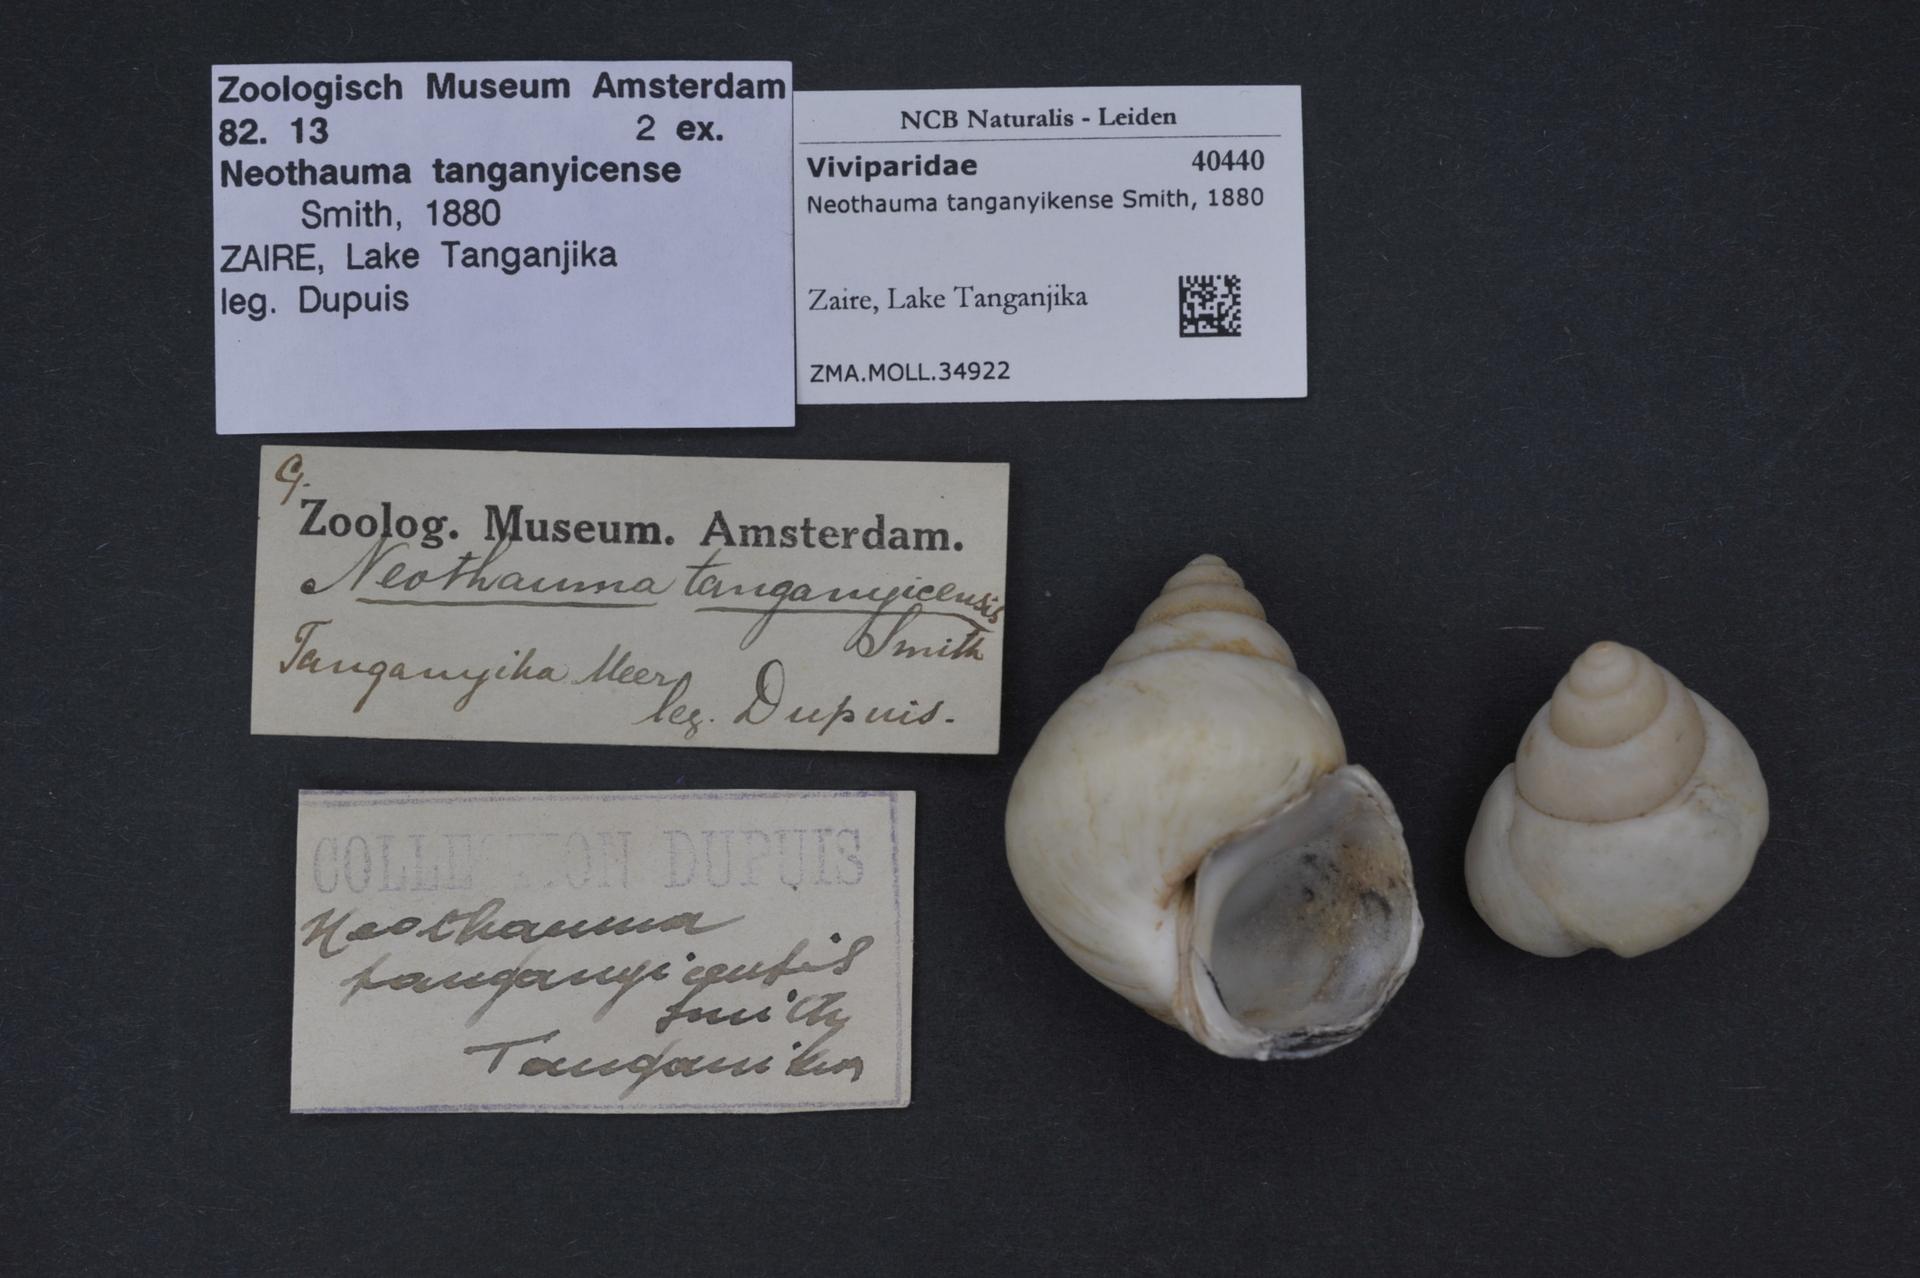 Zoologisch Museum Amsterdam
82. 13 2 ex.
Neothauma tanganyicense
Smith, 1880
ZAIRE, Lake Tanganjika
leg. Dupuis
NCB Naturalis - Leiden
Viviparidae 40440
Neothauma tanganyikense Smith, 1880
Zaire, Lake Tanganjika
ZMA.MOLL.34922
G.
Zoolog. Museum. Amsterdam.
Neothauma tanganyicensis
Smith
Tanganyika Meer
leg. Dupuis.
COLLECTION DUPUIS
Neothauma
tanganyicensis
Smith
Tanganika